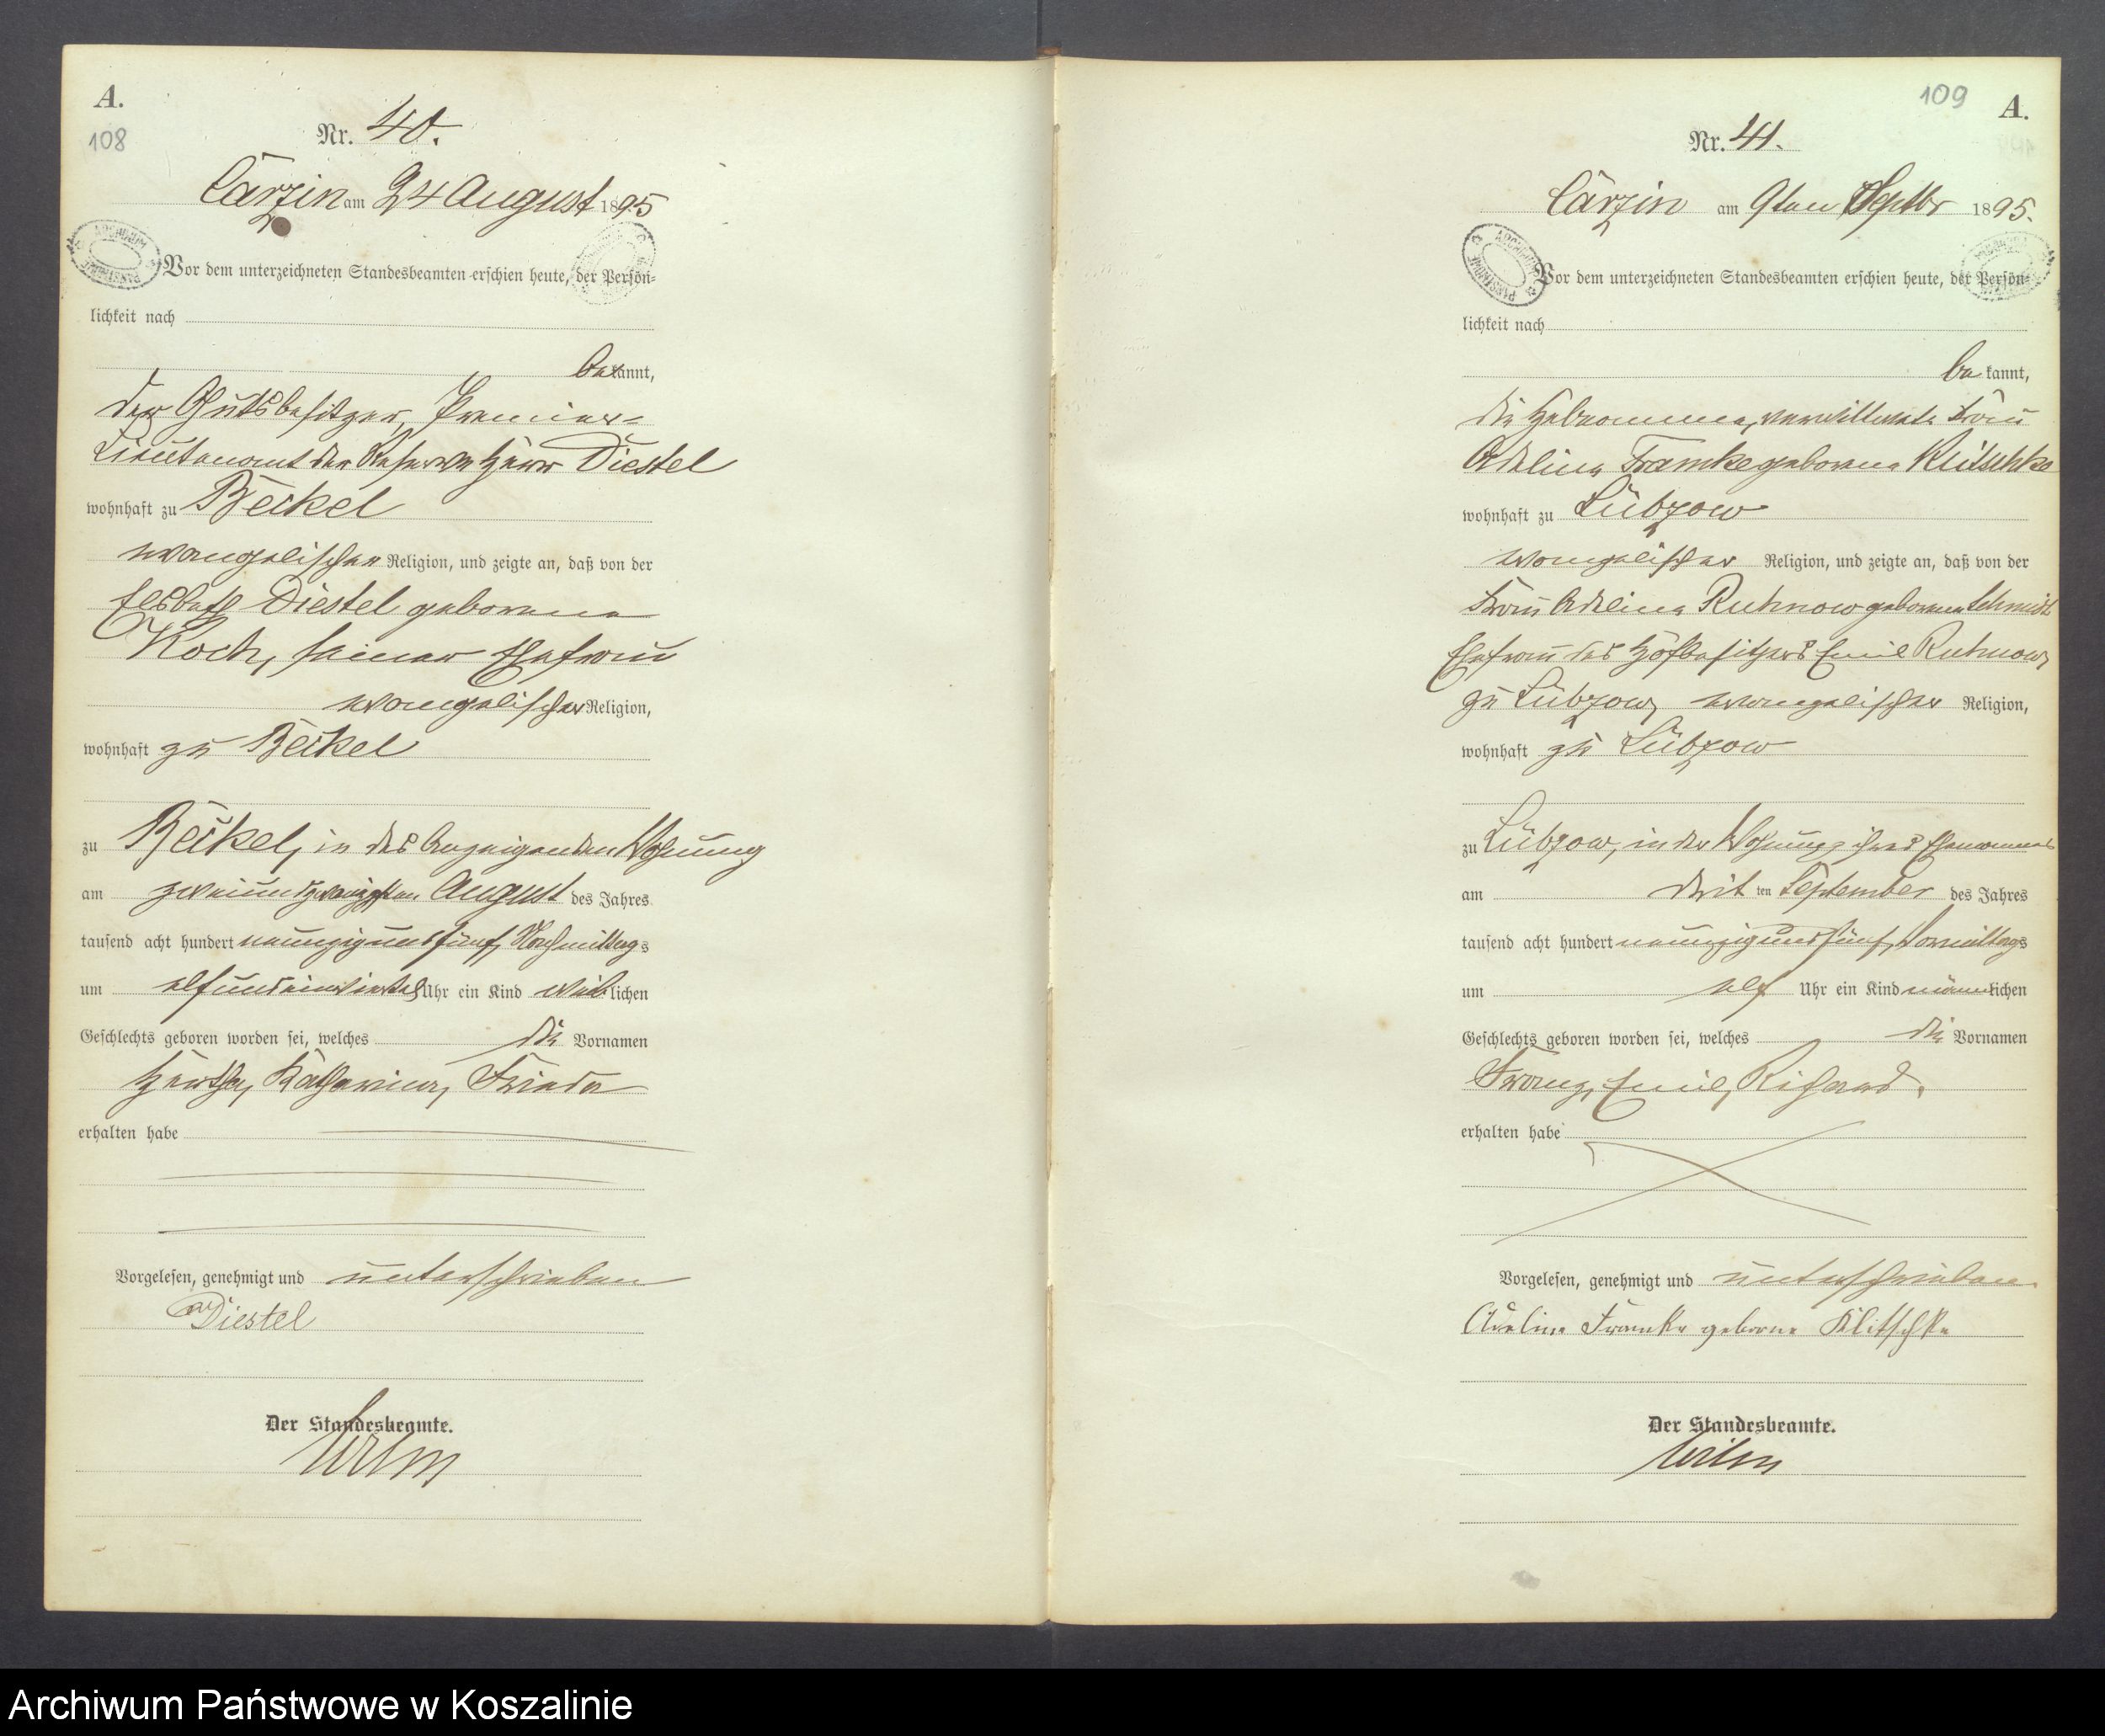 A.
108
Nr. 40.
Carzin am 24 August 1895
Vor dem unterzeichneten Standesbeamten erschien heute, der Persön-
lichkeit nach
bekannt,
der Gutsbesitzer, Premier-
Lieutenant der Reserve Herr Diestel
wohnhaft zu Beckel
evangelischer Religion, und zeigte an, daß von der
Elsbeth Diestel geborene
Koch, seiner Ehefrau
evangelischer Religion,
wohnhaft zu Beckel
zu Beckel, in des Anzeigenden Wohnung
am zweiundzwanzigsten August des Jahres
tausend acht hundert neunzig und fünf, Nachmittags
um elf und ein viertel Uhr ein Kind weiblichen
Geschlechts geboren worden sei, welches die Vornamen
Hertha, Katharina, Frieda
erhalten habe
Vorgelesen, genehmigt und unterschrieben
Diestel
Der Standesbeamte.
109
A.
Nr. 41.
Carzin am 9ten Septbr 1895.
Vor dem unterzeichneten Standesbeamten erschien heute, der Persön-
lichkeit nach
bekannt,
die Hebeamme, verwittwete Frau
Adeline Framke geborene Klitschke
wohnhaft zu Lübzow
evangelischer Religion, und zeigte an, daß von der
Frau Adeline Ruhnow geborene Schmidt
Ehefrau des Hofbesitzers Emil Ruhnow
zu Lübzow, evangelischer Religion,
wohnhaft zu Lübzow
zu Lübzow, in der Wohnung ihres Ehemannes
am dritten September des Jahres
tausend acht hundert neunzig und fünf, Vormittags
um elf Uhr ein Kind männlichen
Geschlechts geboren worden sei, welches die Vornamen
Franz, Emil, Richard.
erhalten habe
Vorgelesen, genehmigt und unterschrieben.
Adeline Framke geborne Klitschke
Der Standesbeamte.
Archiwum Państwowe w Koszalinie